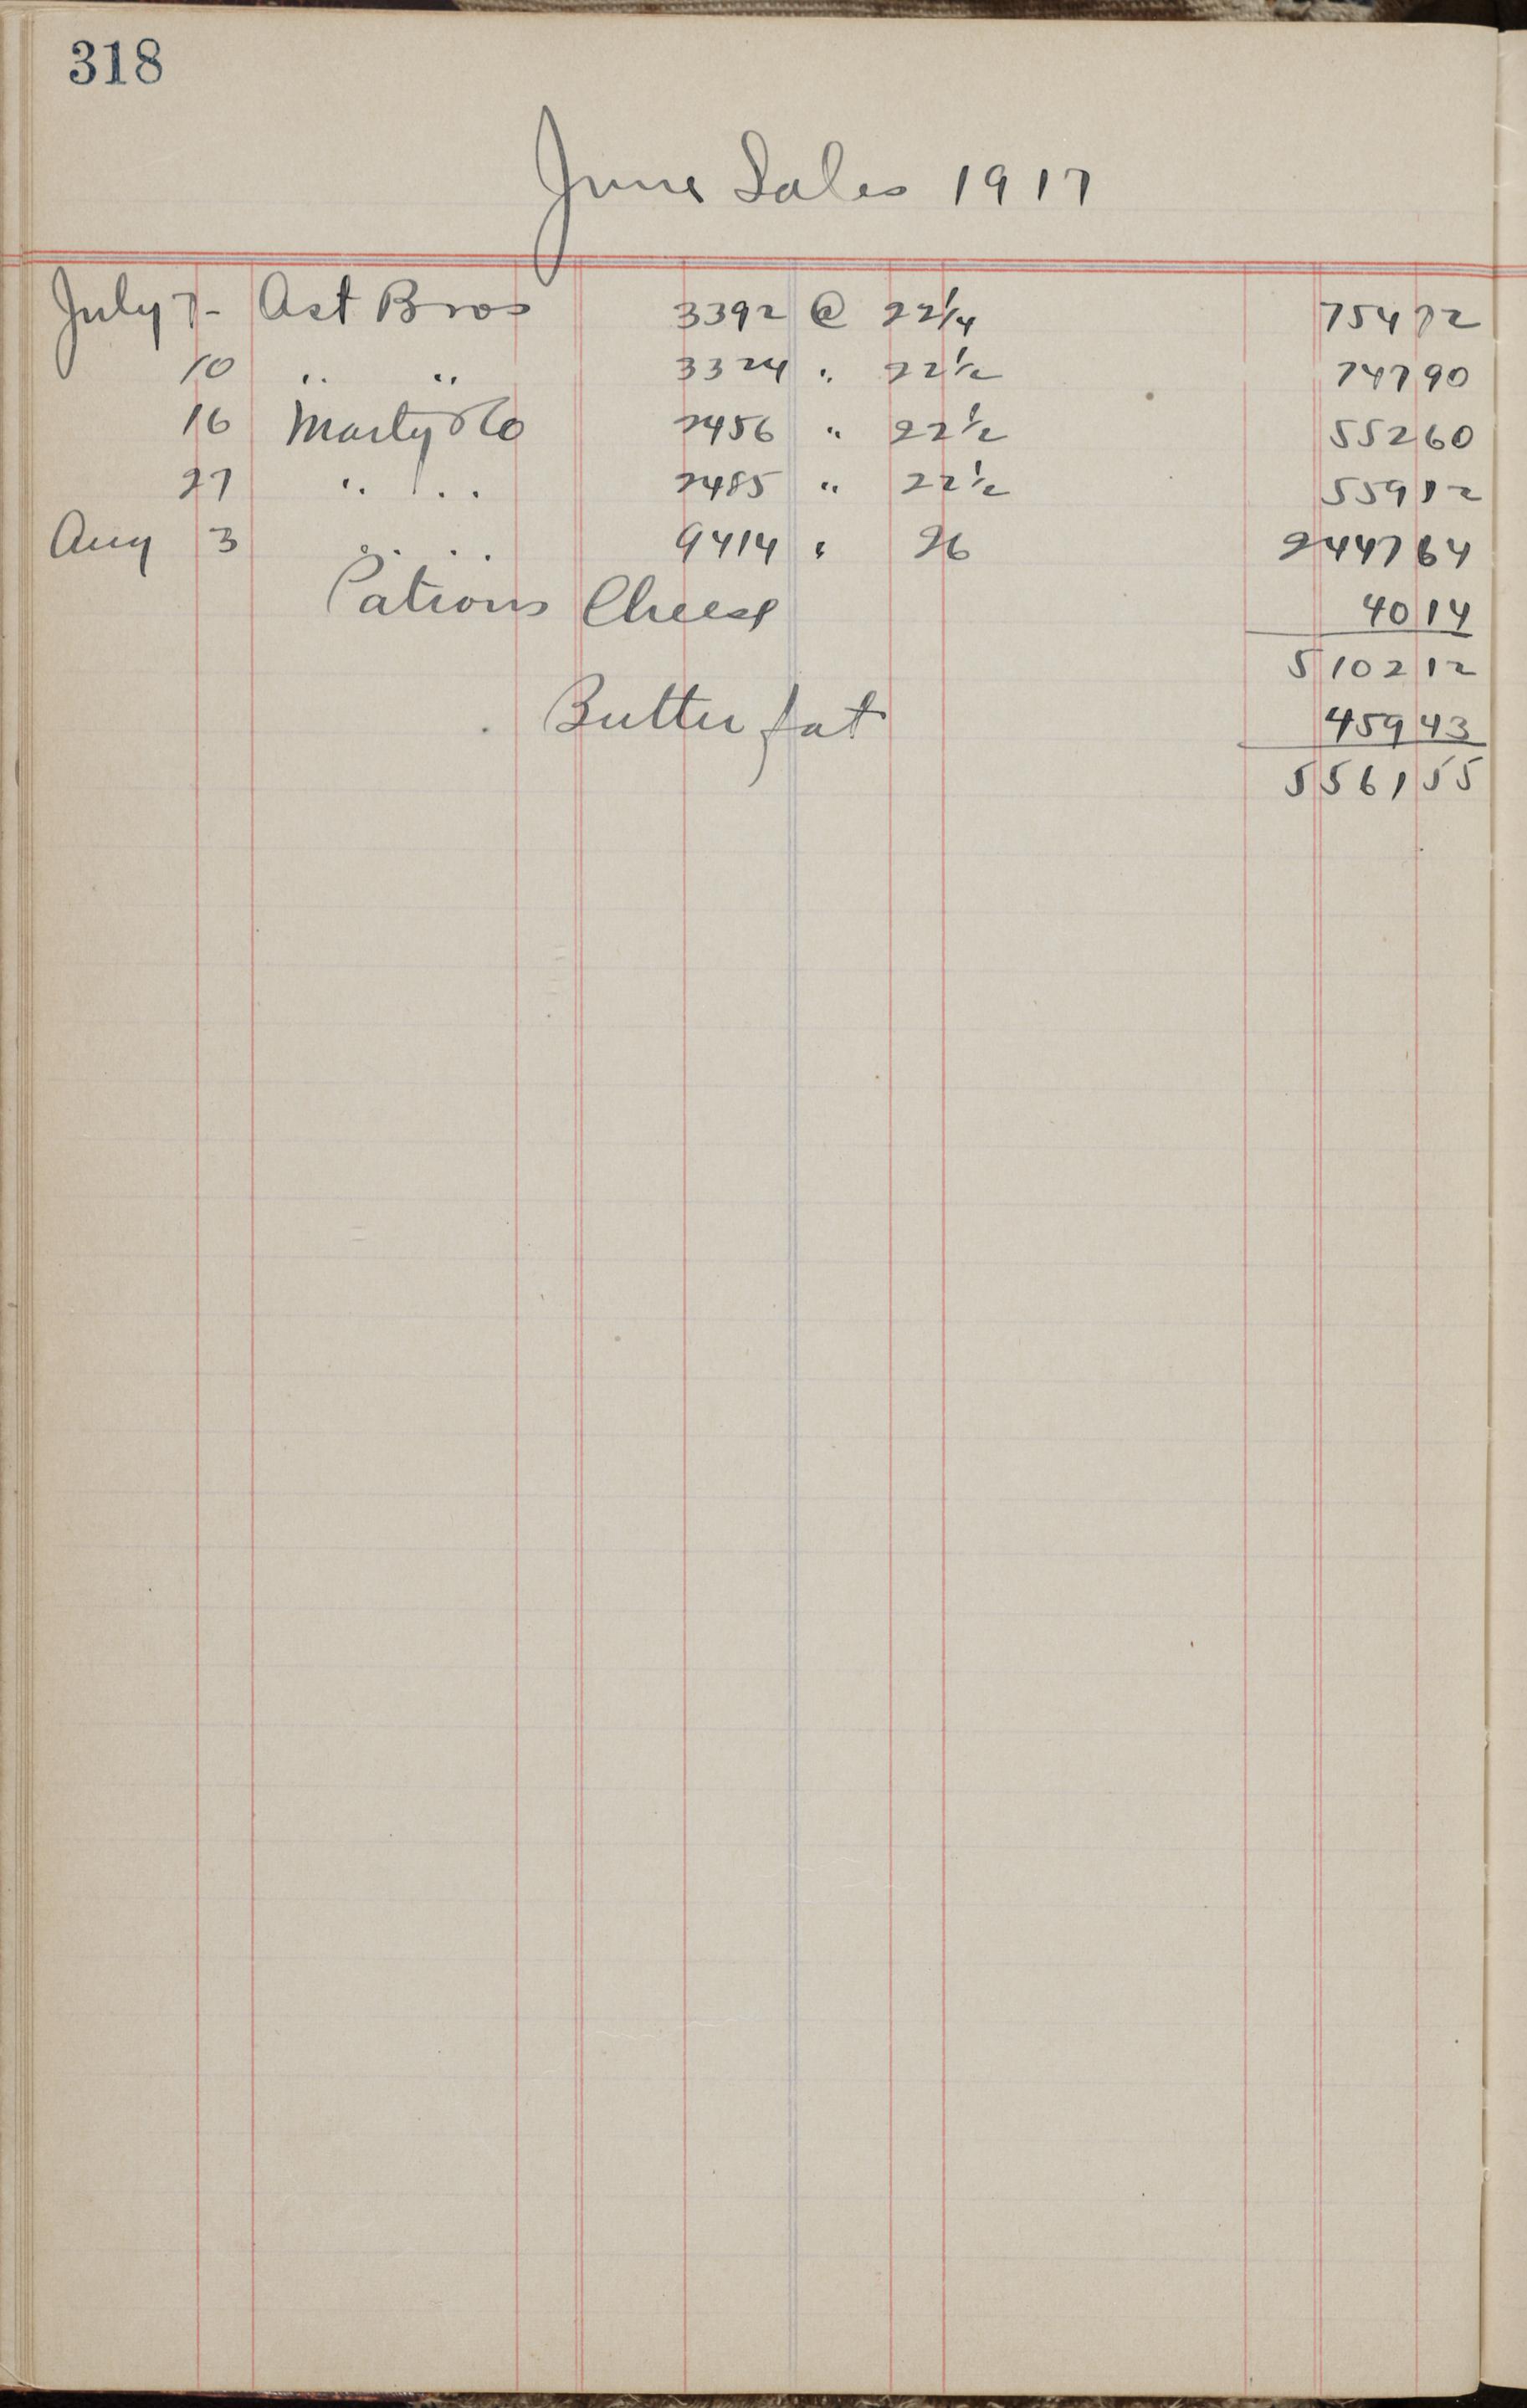 318
June Sales 1917
July 7 - Ast Bros 3392 @ 22 1/4 754 72
10 " " 3324 " 22 1/2 747 90
16 Marty & Co 2456 " 22 1/2 552 60
27 " " 2485 " 22 1/2 559 12
Aug 3 " " 9414 " 26 2447 64
Patrons Cheese 40 14
5102 12
Butter fat 459 43
5561 55